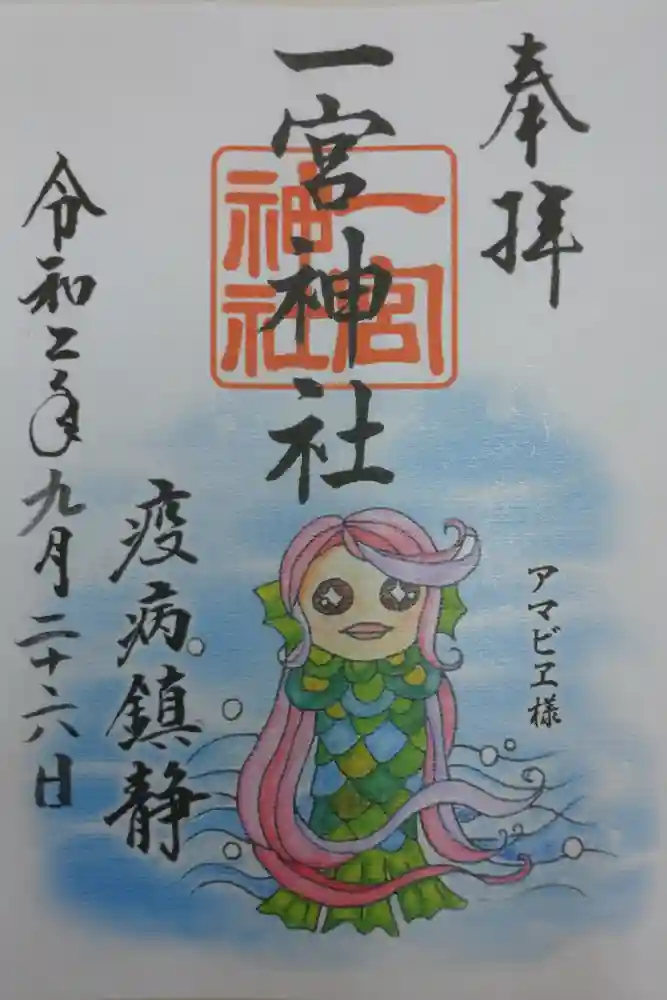 奉拝
一宮神社
一宮
神社
アマビヱ様
疫病鎮静
令和二年九月二十六日